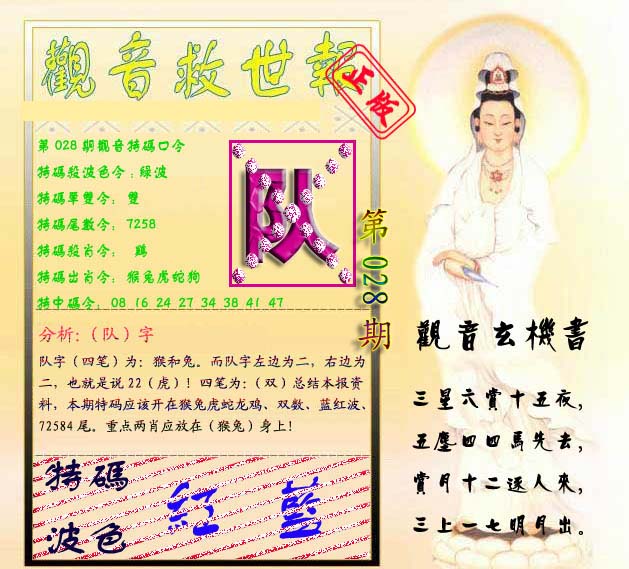 觀音救世報
正版
第028期觀音特碼口令
特碼殺波色令:綠波
特碼單雙令: 雙
特碼尾數令: 7258
特碼殺肖令: 鷄
特碼出肖令: 猴兔虎蛇狗
特中碼令: 08 16 24 27 34 38 41 47
队
第028期
分析:(队)字
队字(四笔)为:猴和兔。而队字左边为二,右边为
二,也就是说22(虎)!四笔为:(双)总结本报资
料,本期特码应该开在猴兔虎蛇龙鸡、双数、蓝红波、
72584尾。重点两肖应放在(猴兔)身上!
特碼
波色
紅 藍
觀音玄機書
三星六賞十五夜,
五塵四四馬先去,
賞月十二逐人來,
三上一七明月出。